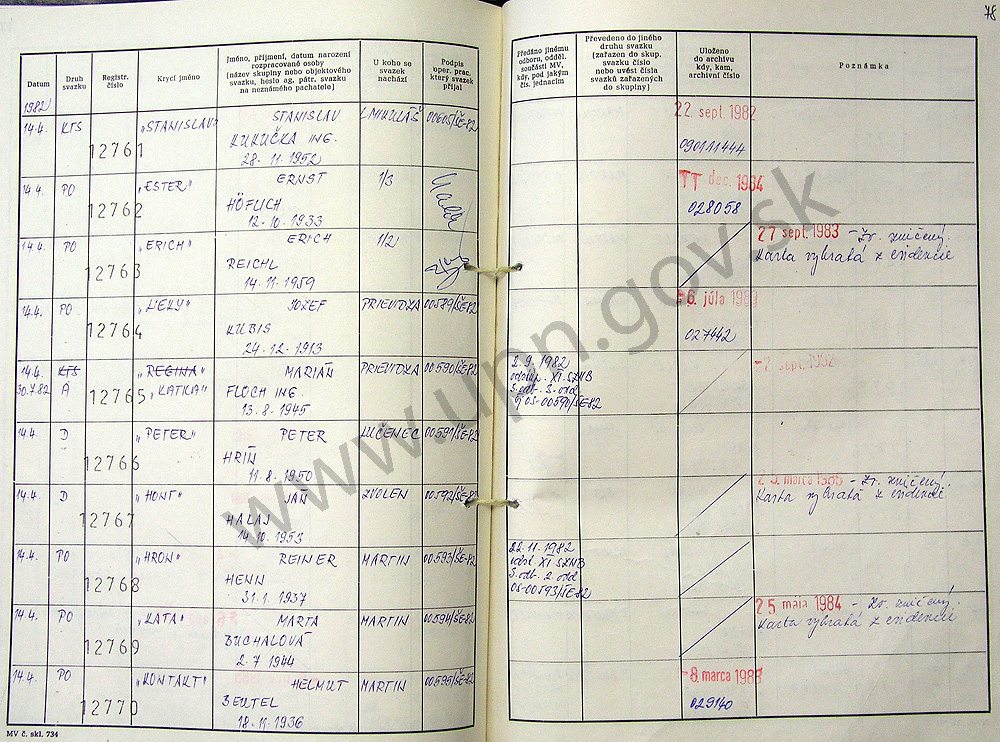 78
Datum
Druh svazku
Registr. číslo
Krycí jméno
Jméno, příjmení, datum narození
rozpracované osoby
(název skupiny nebo objektového
svazku, heslo ag. pátr. svazku
na neznámého pachatele)
U koho se
svazek
nachází
Podpis
oper. prac.
který svazek
přijal
Předáno jinému
odboru, odděl.
součásti MV,
kdy, pod jakým
čís. jednacím
Převedeno do jiného
druhu svazku
(zařazen do skup.
svazku číslo
nebo uvést čísla
svazků zařazených
do skupiny)
Uloženo
do archivu
kdy, kam,
archivní číslo
Poznámka
1982
14.4. KTS „STANISLAV" STANISLAV L. MIKULÁŠ 00605/ŠE-82 22. sept. 1982
12761 KUKUČKA ING.
28. 11. 1952 090111444
14.4. PO „ESTER" ERNST 1/3 dec. 1984
12762 HÖFLICH 028058
12. 10. 1933
14.4. PO „ERICH" ERICH 1/2 27 sept. 1983 – Zv. zničený.
12763 REICHL Karta vybratá z evidencie
14. 11. 1959
14.4. PO JOZEF PRIEVIDZA 00589/ŠE-82 júla
12764 KUBIS 027442
24. 12. 1913
14.4. KTS „REGINA" MARIÁN PRIEVIDZA 00590/ŠE-82 2. 9. 1982 sept. 1982
30.7.82 A 12765 „KATKA" FLOCH ING. odstúp. XI. SZNB
13. 8. 1945 S. odb. 3. odd.
OS-00590/ŠE-82
14.4. D „PETER" PETER LUČENEC 00591/ŠE-82
12766 HRÍŇ
11. 8. 1950
14.4. D „HONT" JÁN ZVOLEN 00592/ŠE-82 marca – Zv. zničený.
12767 HALAJ Karta vybratá z evidencie
14. 10. 1953
14.4. PO „HRON" REINER MARTIN 00593/ŠE-82 22. 11. 1982
12768 HENN odst. XI SZNB
31. 1. 1937 S. odb. 2 odd
OS-00593/ŠE-82
14.4. PO „KATA" MARTA MARTIN 00594/ŠE-82 25 mája 1984 – Zv. zničený.
12769 BUCHALOVÁ Karta vybratá z evidencie
2. 7 1944
14.4. PO „KONTAKT" HELMUT MARTIN 00595/ŠE-82 – 8. marca
12770 BEUTEL 029140
18. 11. 1936
MV č. skl. 734
www.upn.gov.sk